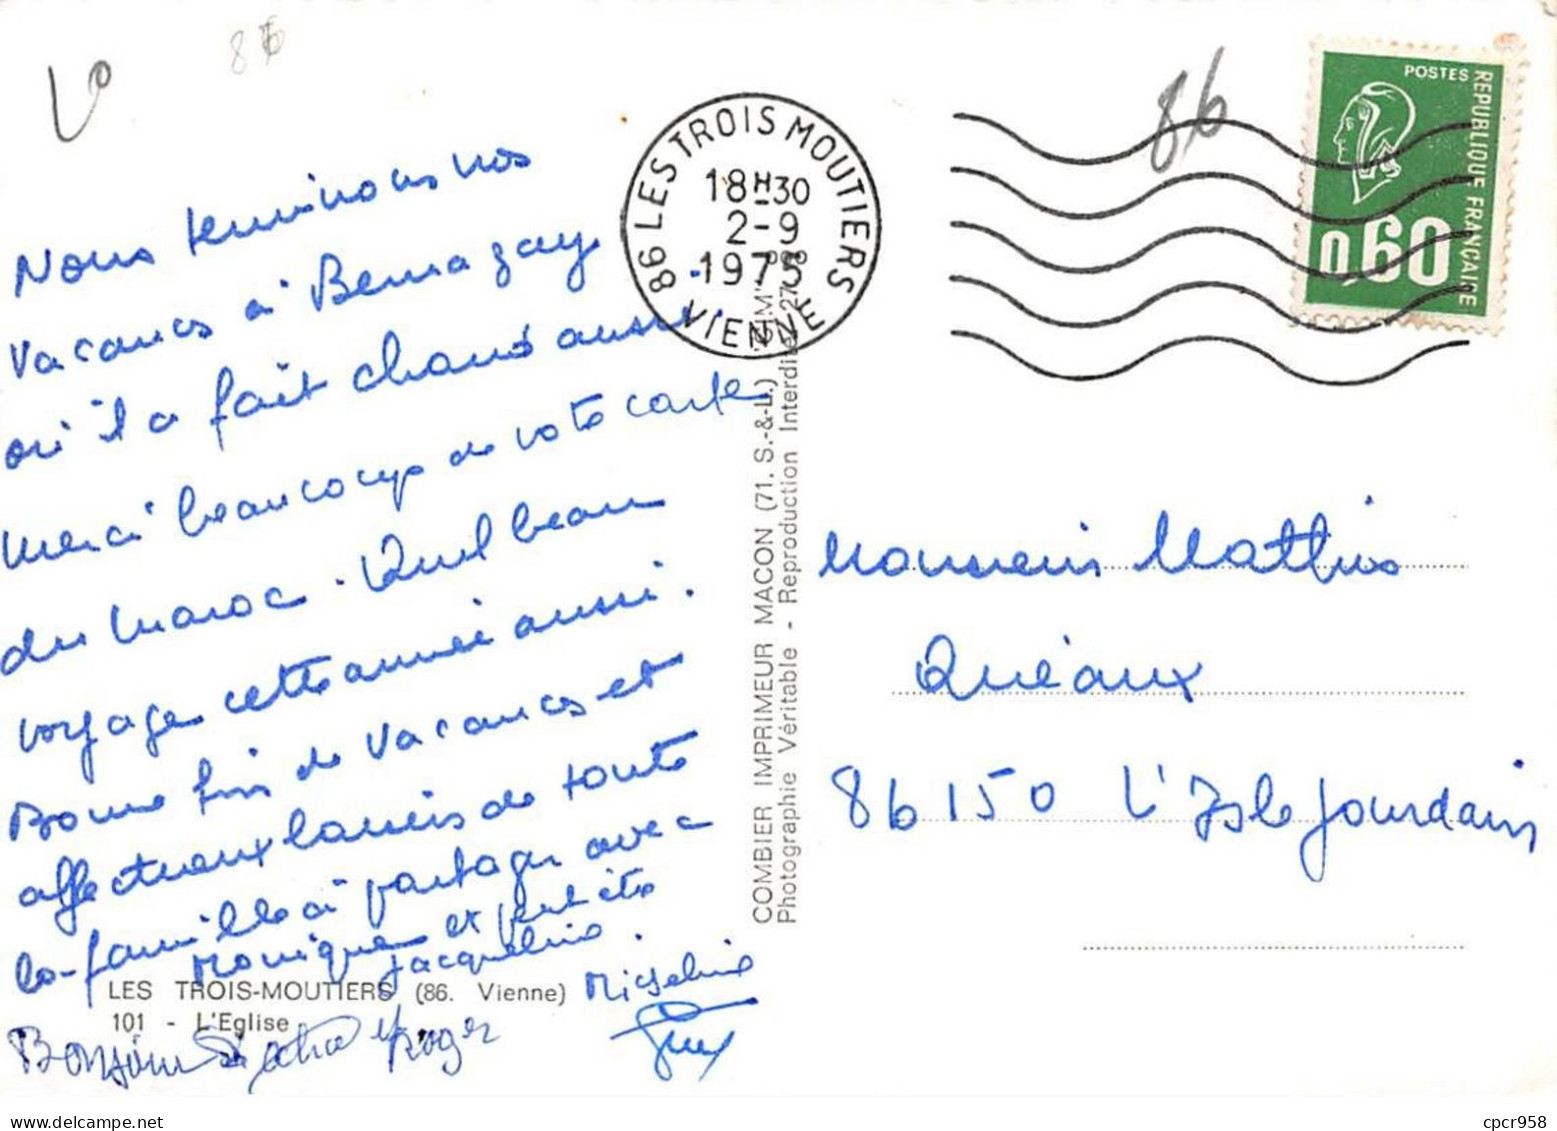 86
86
POSTES
REPUBLIQUE FRANCAISE
0,60
86 LES TROIS MOUTIERS
18H30
2-9
1975
VIENNE
Nous terminons nos
vacances à Bernazay
où il a fait chaud aussi.
Merci beaucoup de votre carte
du Maroc. Quel beau
voyage cette année aussi.
Bonne fin de vacances et
affectueux baisers de toute
la famille à partager avec
Monique et peut être
Jacqueline.
Micheline
Guy
Bonjour de et Roger
LES TROIS-MOUTIERS (86. Vienne)
101 - L'Eglise
COMBIER IMPRIMEUR MACON (71. S.-&-L.)
Photographie Véritable - Reproduction Interdite
Monsieur Mathieu
Quéaux
86150 L'Isle Jourdain
cpcr958